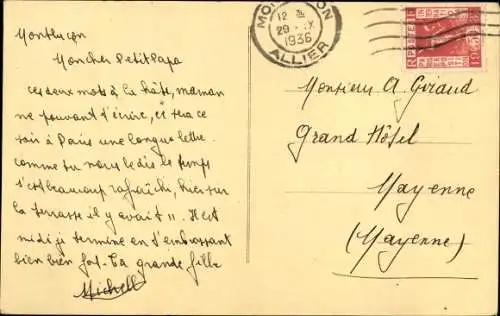 Montluçon
Mon cher Petit Papa
ces deux mots à la hâte, maman
ne pouvant t'écrire, et fera ce
soir à Paris une longue lettre.
comme tu nous le dis le temps
s'est beaucoup rafraîchi, hier sur
la terrasse il y avait 11. Il est
midi je termine en t'embrassant
bien bien fort. Ta grande fille
Michell
MON ON
12
29 IX
1936
ALLIER
POSTES
Monsieur A Giraud
Grand Hôtel
Mayenne
(Mayenne)